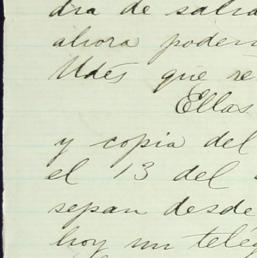 dra de salva
ahora podem
Udes que re
Ellos
y copia del
el 13 del
sepan desde
hoy un telég